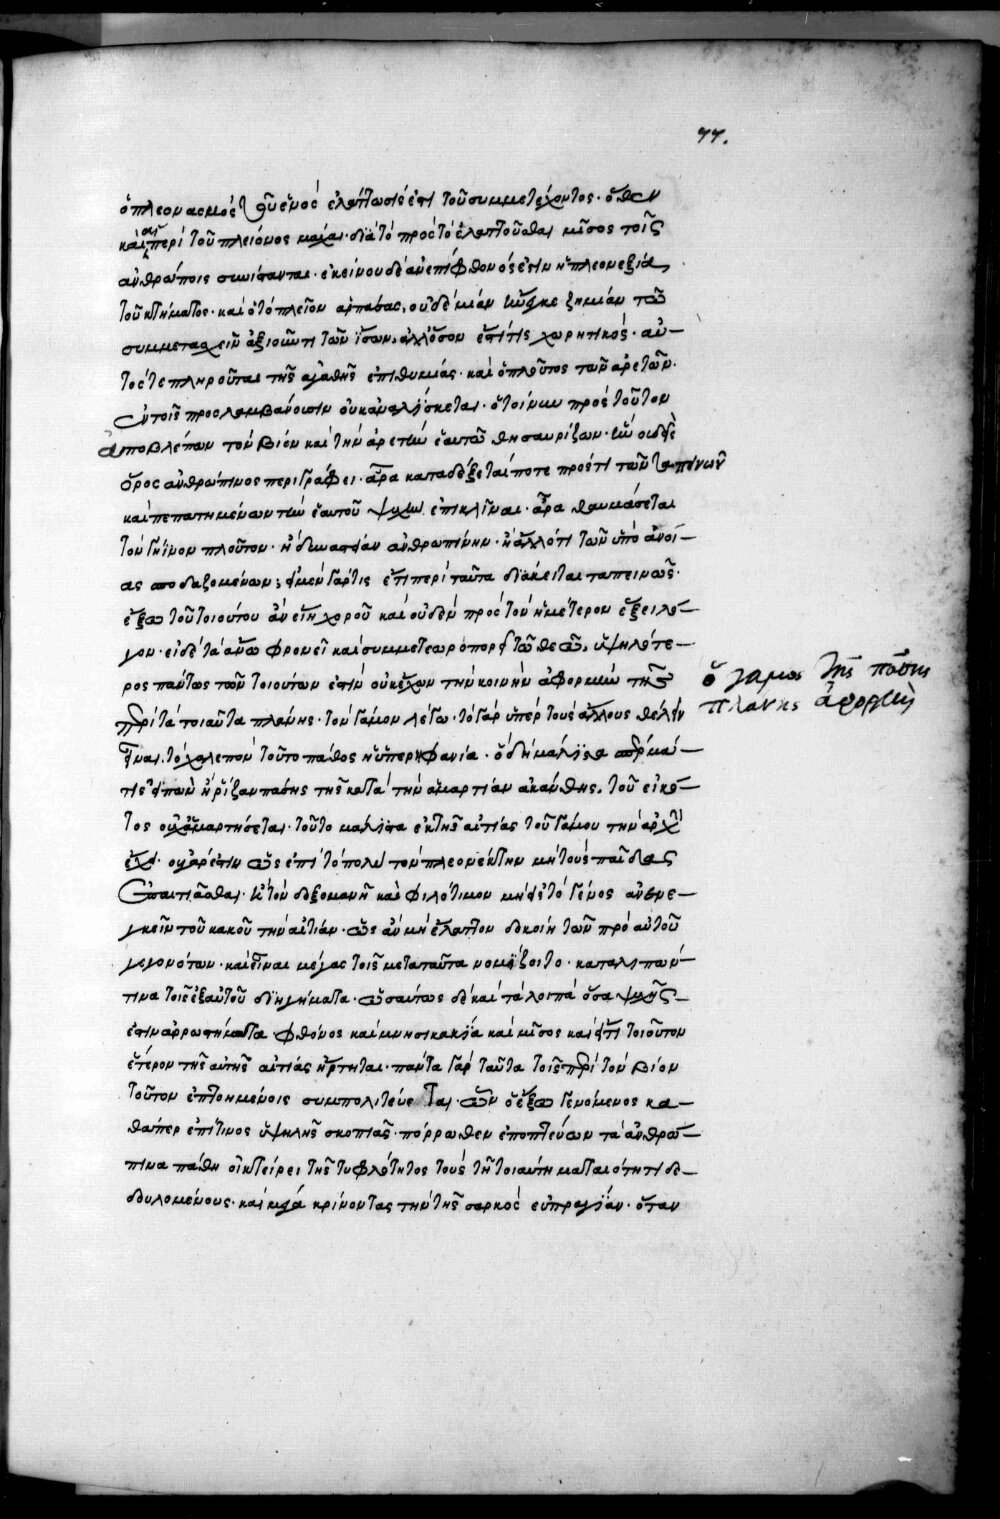 77.
ὁ πλεονασμὸς τοῦ ἑνὸς ἐλάττωσίς ἐστι τοῦ συμμετέχοντος· ὅθεν
καὶ αἱ περὶ τοῦ πλείονος μάχαι· διὰ τὸ πρὸς τὸ ἐλαττοῦσθαι μῖσος τοῖς
ἀνθρώποις συνίστανται· ἐκείνου δὲ ἀνεπίφθονός ἐστιν ἡ πλεονεξία,
τοῦ κτήματος· καὶ ὁ τὸ πλεῖον ἁρπάσας, οὐδεμίαν ἤνεγκε ζημίαν τῷ
συμμετασχεῖν ἀξιοῦντι τῶν ἴσων, ἀλλ' ὅσον ἐστί τις χωρητικὸς· αὐ-
τός τε πληροῦται τῆς ἀγαθῆς ἐπιθυμίας· καὶ ὁ πλοῦτος τῶν ἀρετῶν·
ἐν τοῖς προσλαμβάνουσιν οὐκ ἀναλίσκεται· ὁ τοίνυν πρὸς τοῦτον
ἀποβλέπων τὸν βίον καὶ τὴν ἀρετὴν ἑαυτῷ θησαυρίζων· ἣν οὐδεὶς
ὅρος ἀνθρώπινος περιγράφει· ἆρα καταδέξεταί ποτε πρός τι τῶν ταπεινῶν
καὶ πεπατημένων τὴν ἑαυτοῦ ψυχὴν ἐπικλῖναι· ἆρα θαυμάσεται
τὸν γήϊνον πλοῦτον· ἢ δυναστείαν ἀνθρωπίνην· ἢ ἄλλό τι τῶν ὑπὸ ἀνοί-
ας σπουδαζομένων; εἰ μὲν γάρ τις ἔτι περὶ ταῦτα διάκειται ταπεινῶς·
ἔξω τοῦ τοιούτου ἂν εἴη χοροῦ καὶ οὐδὲν πρὸς τὸν ἡμέτερον ἕξει λό-
γον· εἰ δὲ τὰ ἄνω φρονεῖ καὶ συμμετεωροπορεῖ τῷ θεῷ, ὑψηλότε-
ρος πάντως τῶν τοιούτων ἐστὶν οὐκ ἔχων τὴν κοινὴν ἀφορμὴν τῆς
περὶ τὰ τοιαῦτα πλάνης· τὸν γάμον λέγω· τὸ γὰρ ὑπὲρ τοὺς ἄλλους θέλειν
εἶναι, τὸ χαλεπὸν τοῦτο πάθος ἡ ὑπερηφανία· ὃ δὴ μάλιστα σπέρμα
τις εἰπὼν ἢ ῥίζαν πάσης τῆς κατὰ τὴν ἁμαρτίαν ἀκάνθης, τοῦ εἰκό-
τος οὐχ ἁμαρτήσεται· τοῦτο μάλιστα ἐκ τῆς αἰτίας τοῦ γάμου τὴν ἀρχὴν
ἔχει· οὐ γάρ ἐστιν ὡς ἐπὶ τὸ πολὺ τὸν πλεονέκτην μὴ τοὺς παῖδας
ἐπαιτιᾶσθαι· ἢ τὸν δοξομανῆ καὶ φιλότιμον μὴ εἰς τὸ γένος ἀνενε-
γκεῖν τοῦ κακοῦ τὴν αἰτίαν· ὡς ἂν μὴ ἔλαττον δοκοίη τῶν πρὸ αὐτοῦ
γεγονότων· καὶ εἶναι μέγας τοῖς μετὰ ταῦτα νομίζοιτο· καταλιπών
τινα τοῖς ἐξ αὐτοῦ διηγήματα· ὡσαύτως δὲ καὶ τὰ λοιπὰ ὅσα ψυχῆς
ἐστὶν ἀρρωστήματα φθόνος καὶ μνησικακία καὶ μῖσος καὶ εἴ τι τοιοῦτον
ἕτερον τῆς αὐτῆς αἰτίας ἤρτηται· πάντα γὰρ ταῦτα τοῖς περὶ τὸν βίον
τοῦτον ἐπτοημένοις συμπολιτεύεται· ὧν ὁ ἔξω γενόμενος κα-
θάπερ ἐπί τινος ὑψηλῆς σκοπιᾶς· πόρρωθεν ἐποπτεύων τὰ ἀνθρώ-
πινα πάθη οἰκτείρει τῆς τυφλότητος τοὺς τῇ τοιαύτῃ ματαιότητι δε-
δουλωμένους· καὶ μέγα κρίνοντας τὴν τῆς σαρκὸς εὐπραγίαν· ὅταν
ὁ γάμος τῆς πάσης
πλάνης ἀφορμὴ